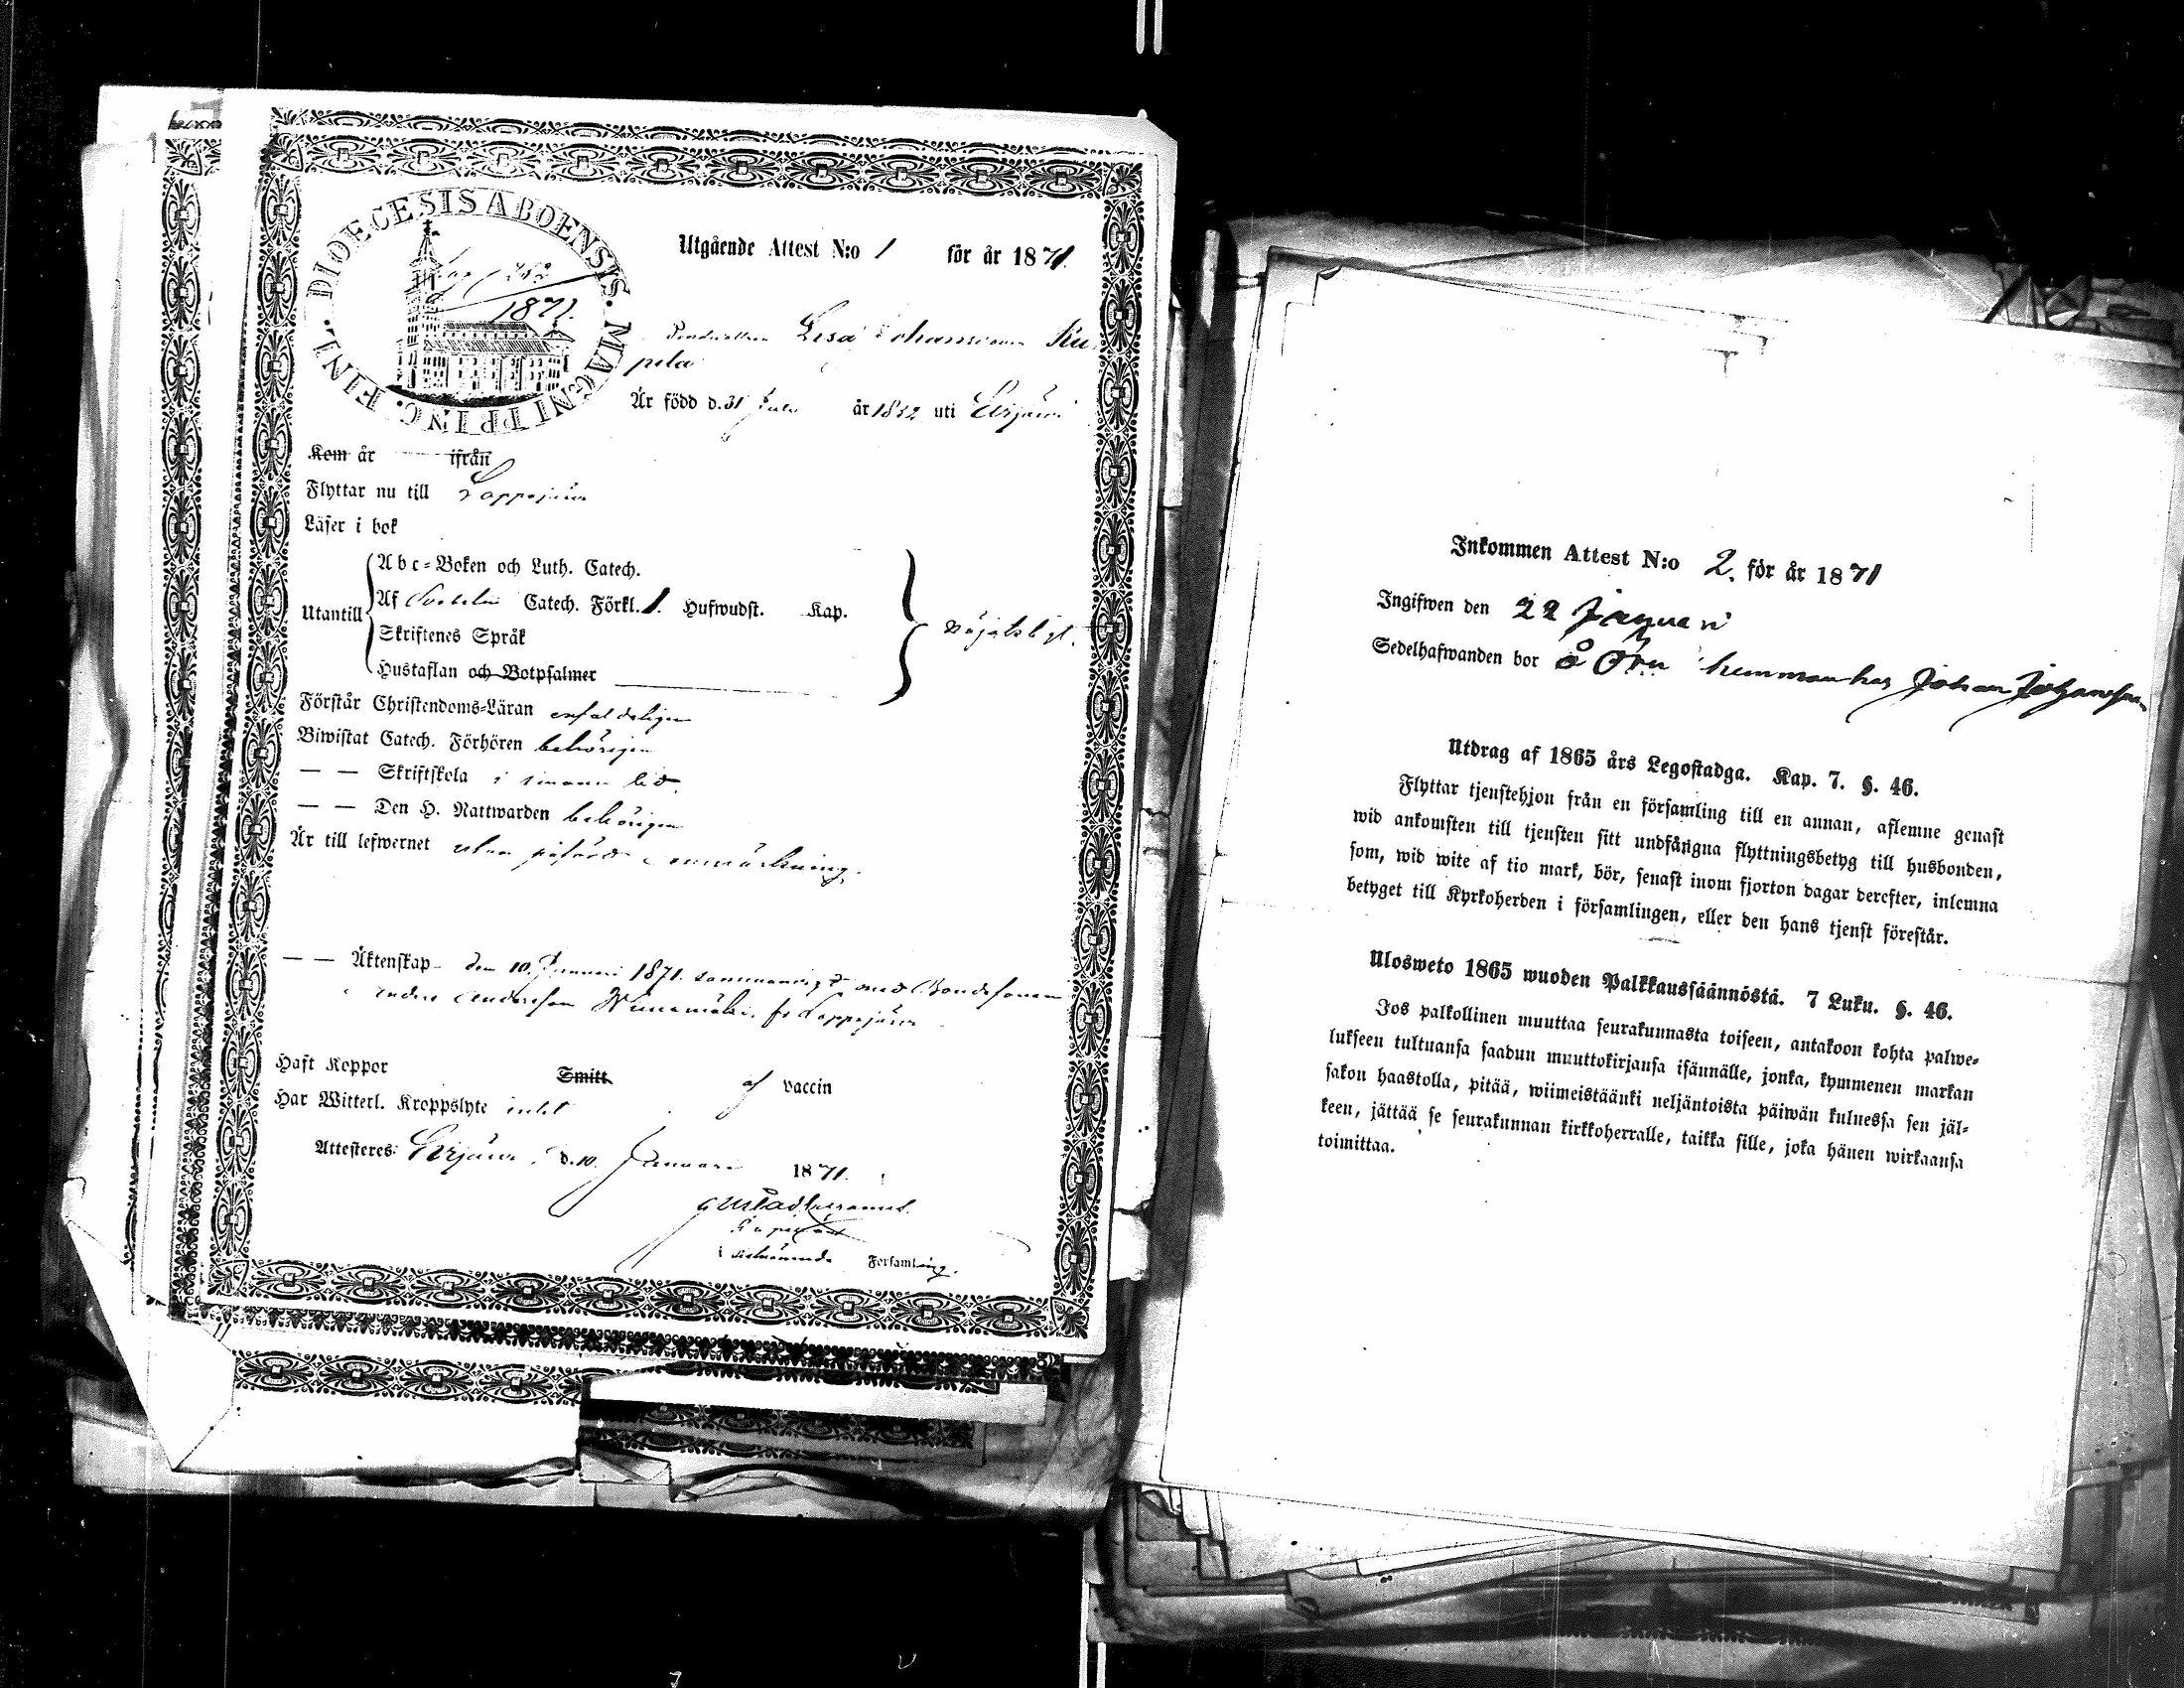 DIOECESIS ABOENSIS. MAGNI PRINC. FINL.
1871.
Utgående Attest N:o 1 för år 1871.
Lisa Johansson Ku
pila
Är född d. 31 Juli år 1832 uti Evijärvi
Kom år ifrån
Flyttar nu till Lappajärvi
Läser i bok
Abc-Boken och Luth. Catech.
Utantill Af Svebelii Catech. Förkl. 1. Hufwudst. Kap.
Skriftenes Språk nöjaktigt.
Hustaflan och Botpsalmer
Förstår Christendoms-Läran enfaldeligen
Biwistat Catech. Förhören behörigen
— — Skriftskola i sinom tid.
— — Den H. Nattwarden behörigen
Är till lefwernet utan påförd anmärkning.
— — Äktenskap den 10 Januari 1871. sammanvigd med Bondesonen
Anders Andersson fr Lappajärvi
Haft Koppor Smitt af vaccin
Har Witterl. Kroppslyte intet
Attesteres: Evijärvi d. 10 Januari 1871.
i Församling.
Inkommen Attest N:o 2. för år 1871
Ingifwen den 22 Januari
Sedelhafwanden bor å hemman hos Johan Johansson
Utdrag af 1865 års Legostadga. Kap. 7. §. 46.
Flyttar tjenstehjon från en församling till en annan, aflemne genast
wid ankomsten till tjensten sitt undfångna flyttningsbetyg till husbonden,
som, wid wite af tio mark, bör, senast inom fjorton dagar derefter, inlemna
betyget till Kyrkoherden i församlingen, eller den hans tjenst förestår.
Ulosweto 1865 wuoden Palkkaussäännöstä. 7 Luku. §. 46.
Jos palkollinen muuttaa seurakunnasta toiseen, antakoon kohta palwe-
lukseen tultuansa saadun muuttokirjansa isännälle, jonka, kymmenen markan
sakon haastolla, pitää, wiimeistäänki neljäntoista päiwän kuluessa sen jäl-
keen, jättää se seurakunnan kirkkoherralle, taikka sille, joka hänen wirkaansa
toimittaa.